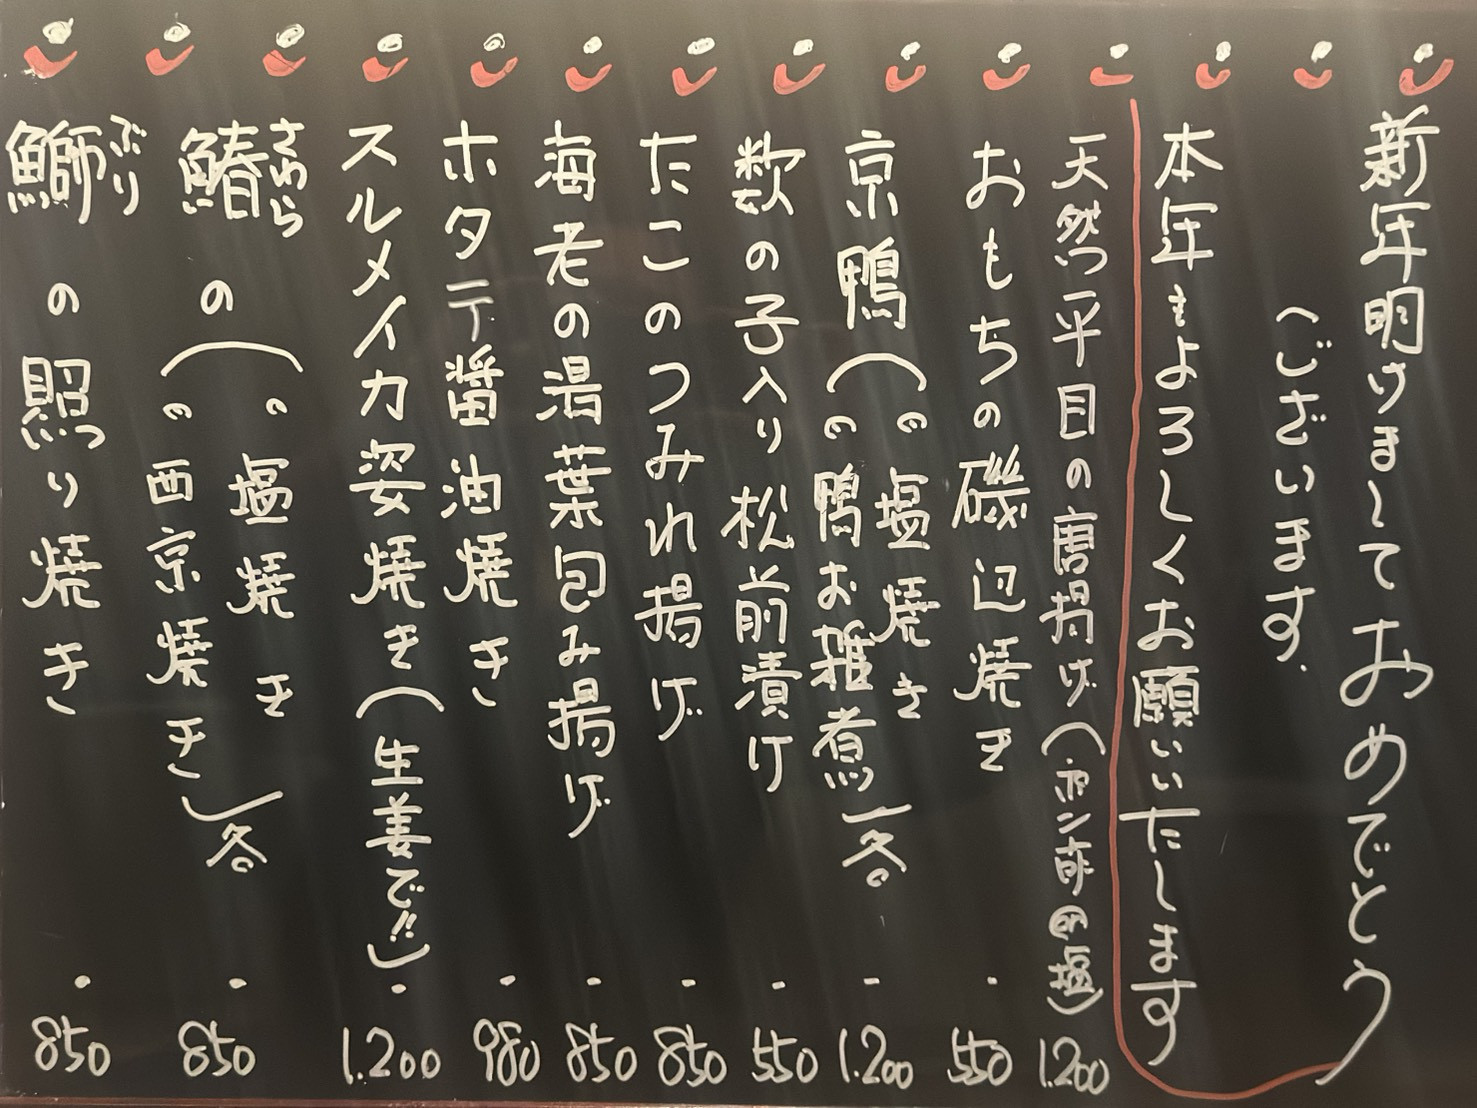 新年明けましておめでとう
ございます.
本年もよろしくお願いいたします
天然平目の唐揚げ(ポン酢or塩) 1.200
おもちの磯辺焼き ・ 550
京鴨(の塩焼き
の鴨お雑煮)各。 - 1.200
数の子入り松前漬け - 550
たこのつみれ揚げ - 850
海老の湯葉包み揚げ - 850
ホタテ醤油焼き - 980
スルメイカ姿焼き(生姜で!!) ・ 1.200
さわら
鰆の(。塩焼き
。西京焼き)各。 - 850
ぶり
鰤の照り焼き ・ 850